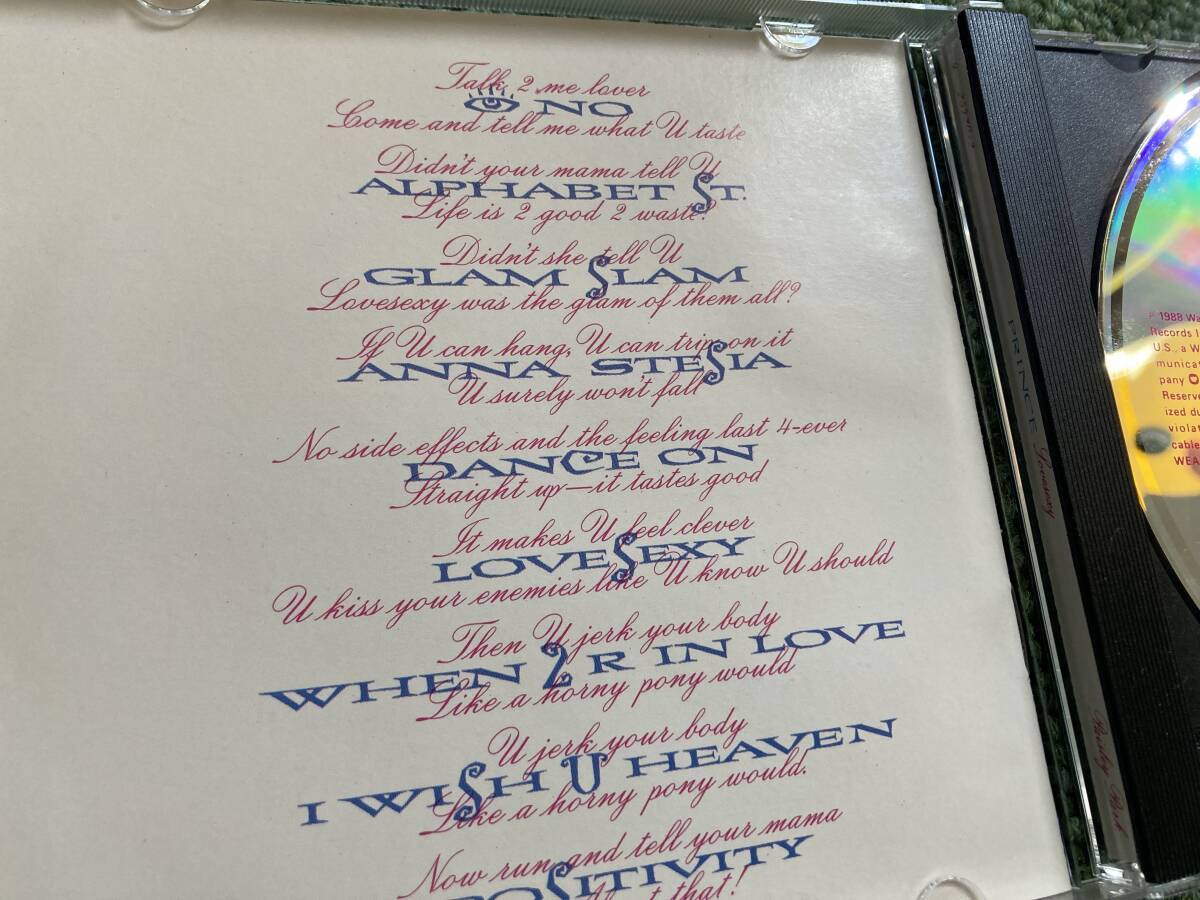 Talk 2 me lover
NO
Come and tell me what U taste
Didn't your mama tell U
ALPHABET ST.
Life is 2 good 2 waste?
Didn't she tell U
GLAM SLAM
Lovesexy was the glam of them all?
If U can hang, U can trip on it
ANNA STESIA
U surely won't fall
No side effects and the feeling last 4-ever
DANCE ON
Straight up—it tastes good
It makes U feel clever
LOVESEXY
U kiss your enemies like U know U should
Then U jerk your body
WHEN 2 R IN LOVE
Like a horny pony would
U jerk your body
I WISH U HEAVEN
Like a horny pony would.
Now run and tell your mama
POSITIVITY
that!
PRINCE Lovesexy
Paisley Park
℗ 1988 Wa
Records I
U.S., a W
municat
pany
Reserve
ized du
violat
cable
WEA